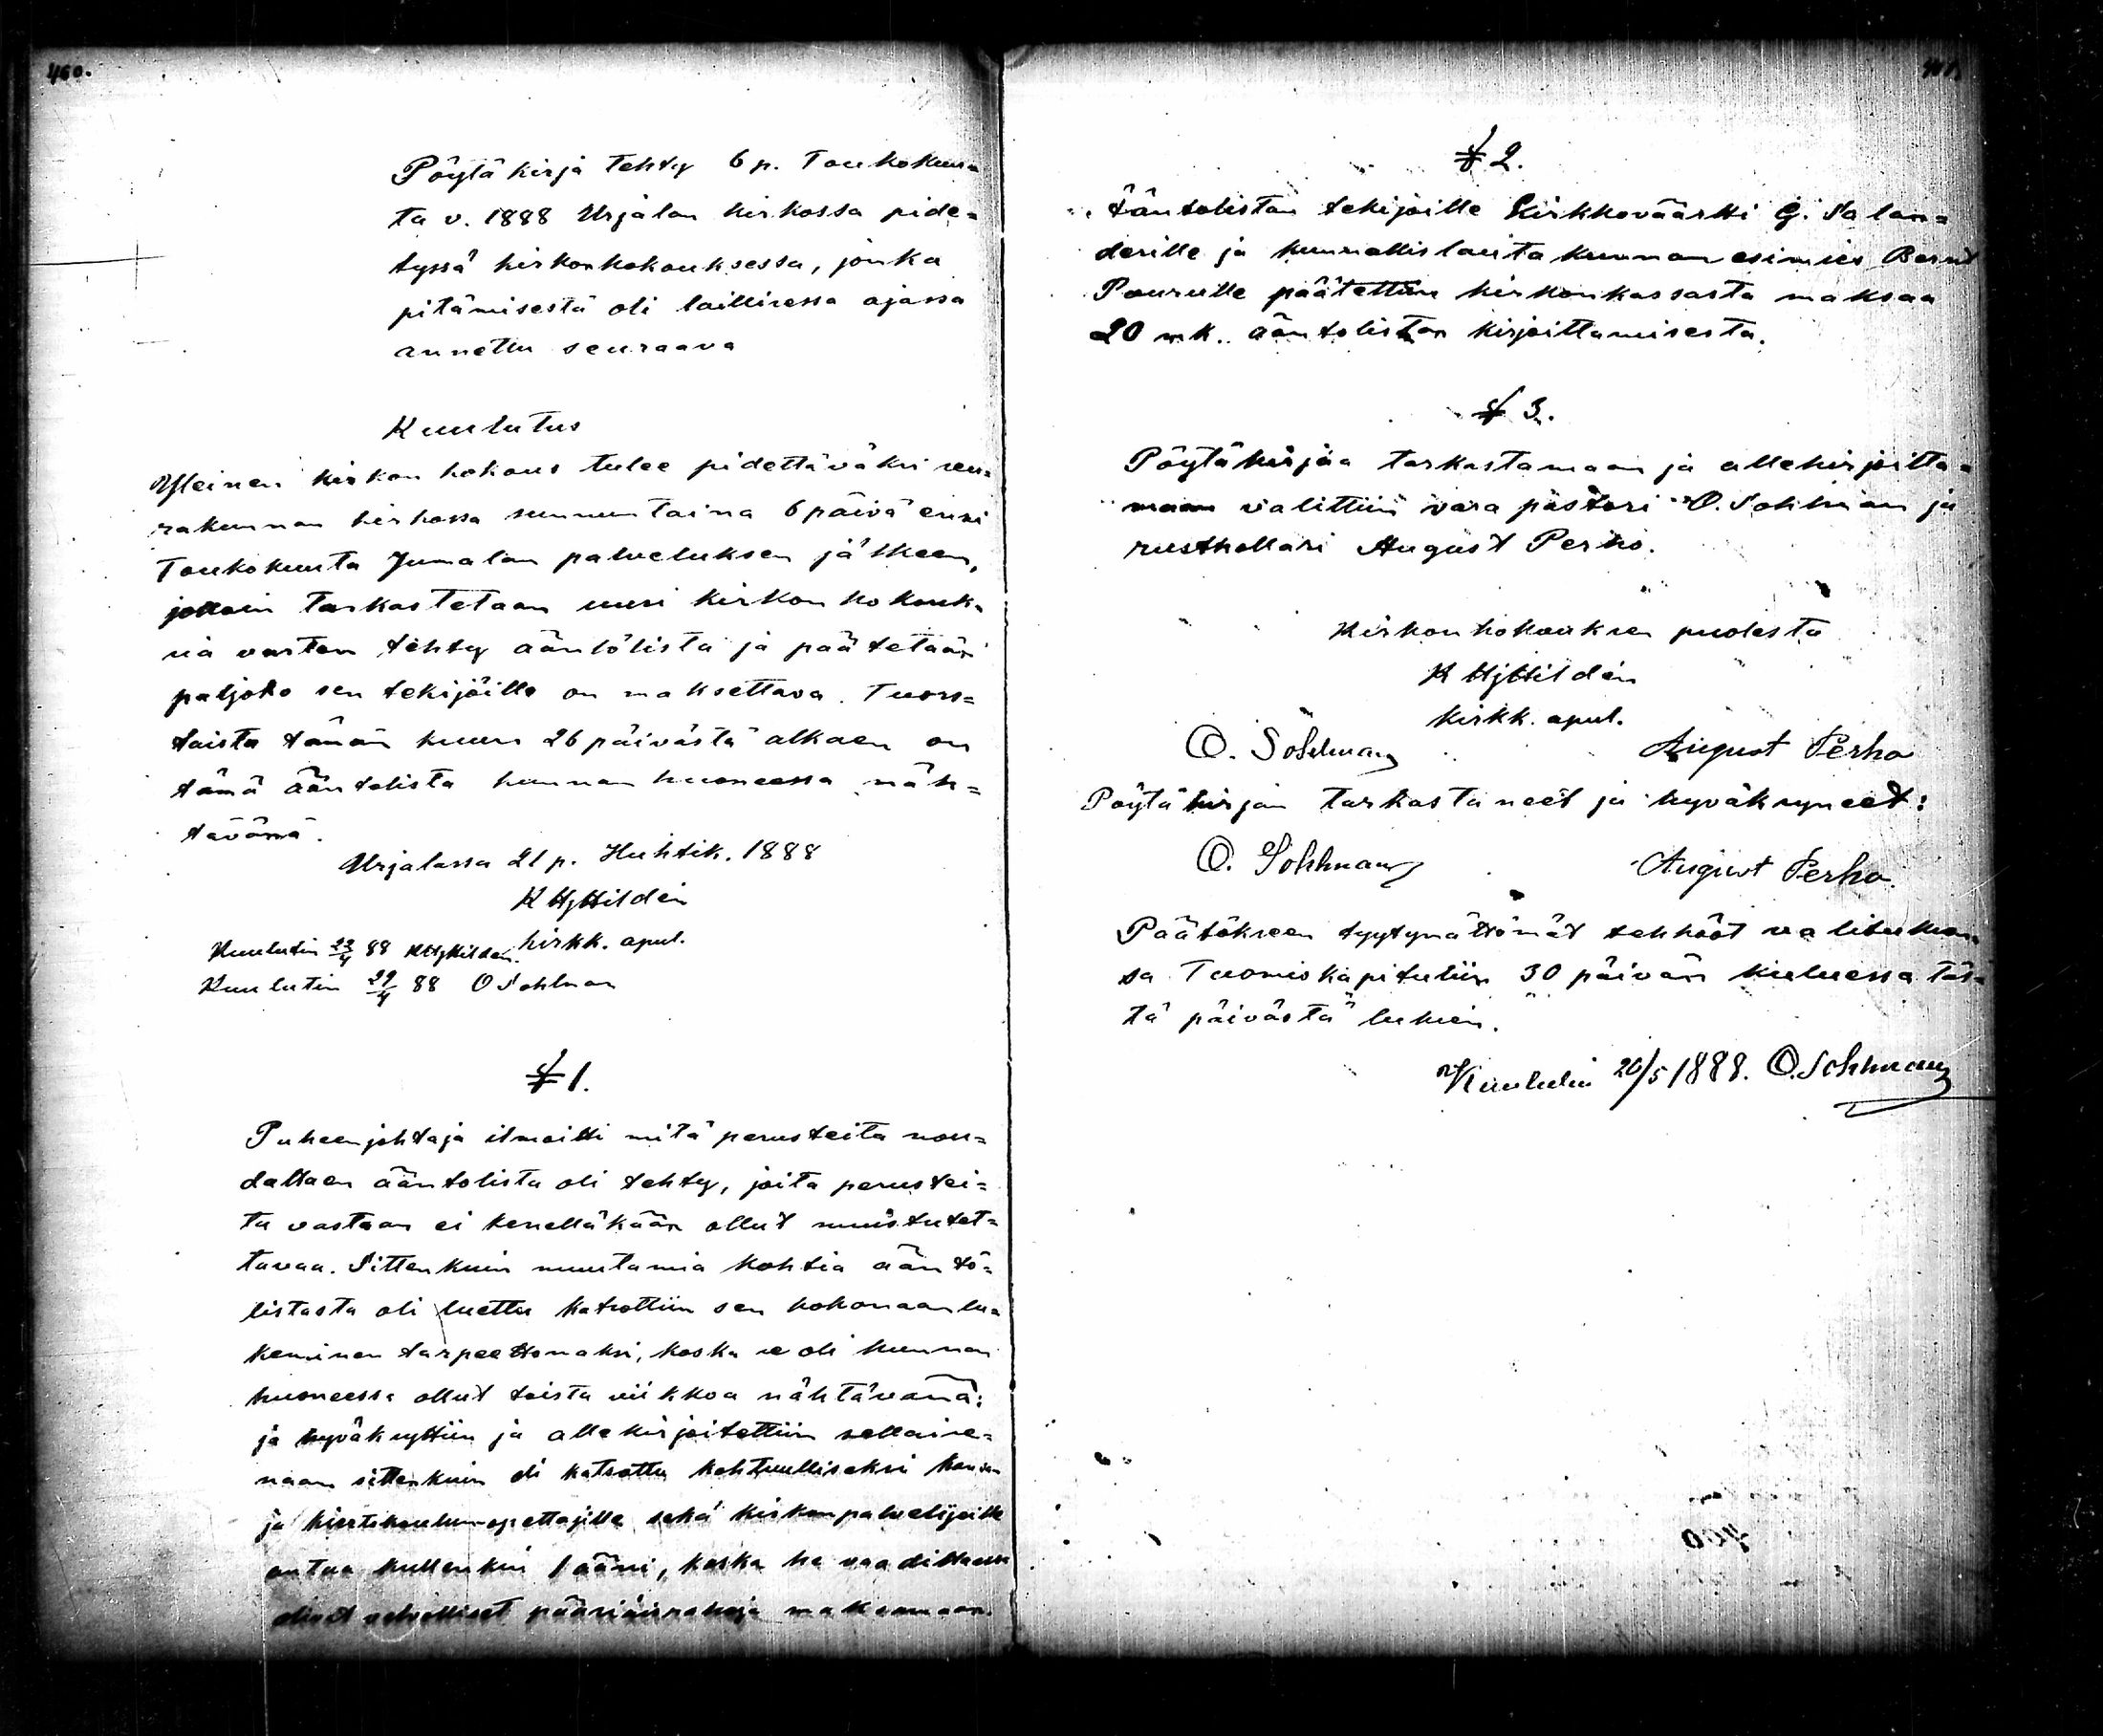 460.
Pöytäkirja tehty 6 p. Toukokuu=
ta v. 1888 Urjalan kirkossa pide=
tyssä kirkonkokouksessa, jonka
pitämisestä oli laillisessa ajassa
annettu seuraava
Kuulutus
Yleinen kirkon kokous tulee pidettäväksi seu=
rakunnan kirkossa sunnuntaina 6 päivä ensi
Toukokuuta Jumalan palveluksen jälkeen,
jolloin tarkastetaan uusi kirkon kokouk=
sia varten tehty ääntölista ja päätetään
paljoko sen tekijöille on maksettava. Tuors=
taista tämän kuun 26 päivästä alkaen on
tämä ääntölista kunnan huoneessa näh=
tävänä.
Urjalassa 21 p. Huhtik. 1888
K Hj Hildén
kirkk. apul.
Kuulutin 22/4 88 K Hj Hildén.
Kuulutin 29/4 88 O Sohlman
§ 1.
Puheenjohtaja ilmoitti mitä perusteita nou=
dattaen ääntölista oli tehty, joita perustei=
ta vastaan ei kenelläkään ollut muistutet=
tavaa. Sittenkuin muutamia kohtia ääntö=
listasta oli luettu katsottiin sen kokonaan lu=
keminen tarpeettomaksi, koska se oli kunnan
huoneessa ollut toista viikkoa nähtävänä;
ja hyväksyttiin ja allekirjoitettiin sellaise=
naan sittenkuin oli katsottu kohtuulliseksi kansa
ja kiertokoulunopettajille sekä kirkonpalvelijoille
antaa kullenkin 1 ääni, koska he vaadittaessa
olivat velvolliset pääsiäisrahoja maksamaan.
461.
§ 2.
Ääntölistan tekijöille Kirkkoväärtti G. Salan=
derille ja kunnallislautakunnan esimies Bernt
Pourulle päätettiin kirkonkassasta maksaa
20 mk. ääntölistan kirjoittamisesta.
§ 3.
Pöytäkirjaa tarkastamaan ja allekirjoitta=
maan valittiin vara pastori O. Sohlman ja
rusthollari August Perho.
Kirkonkokouksen puolesta
K Hj Hildén
kirkk. apul.
O. Sohlman August Perho
Pöytäkirjan tarkastaneet ja hyväksyneet:
O. Sohlman August Perho.
Päätökseen tyytymättömät tehkööt valituksen=
sa Tuomiokapituliin 30 päivän kuluessa täs=
tä päivästä lukien.
Kuulutin 20/5 1888. O. Sohlman